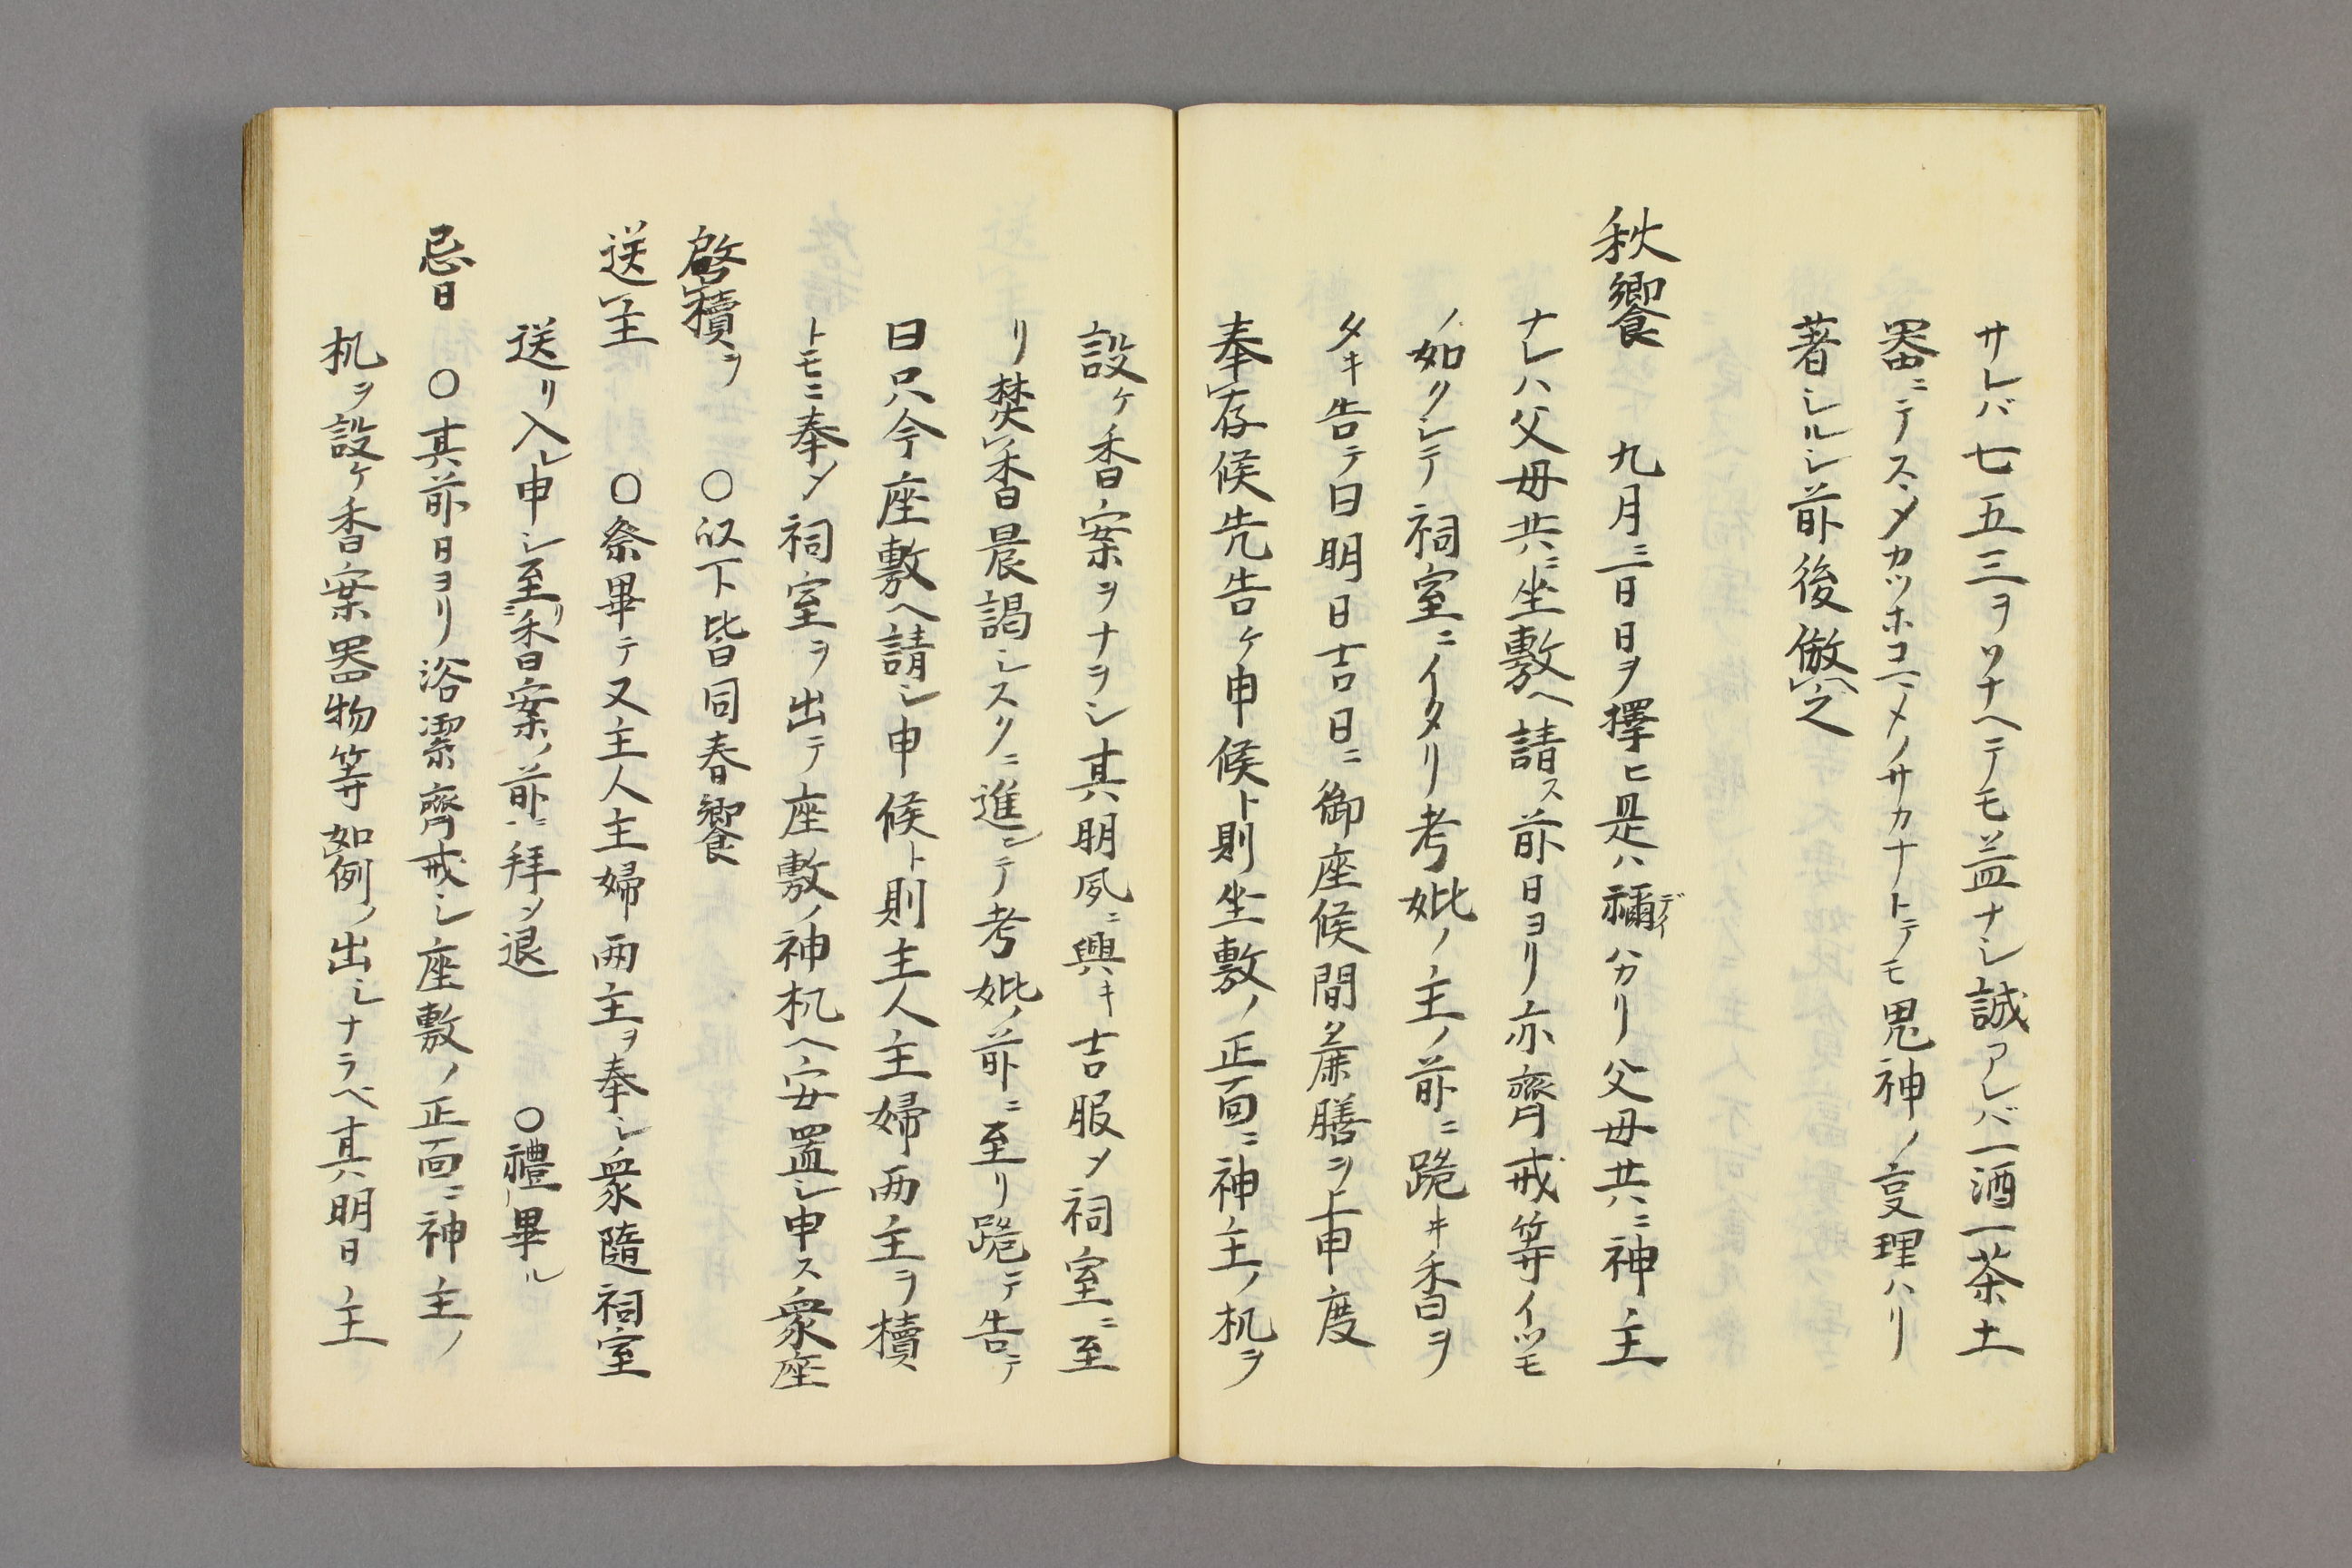 サレバ七五三ヲソナヘテモ益ナシ誠アレバ一酒一茶土
器ニテスヽメカツホコマメノサカナトテモ鬼神ノ享理ハリ
著シルシ前後倣之
秋饗 九月三日日ヲ擇ヒ是ハ禰デイハカリ父母共ニ神主
ナレハ父母共ニ坐敷ヘ請ス前日ヨリ亦齊戒等イツモ
ノ如クシテ祠室ニイタリ考妣ノ主ノ前ニ跪キ香ヲ
タキ告テ曰明日吉日ニ御座候間タ麁膳ヲ上申度
奉存候先告ケ申候ト則坐敷ノ正面ニ神主ノ机ヲ
設ケ香案ヲナラシ其明夙ニ興キ吉服シメ祠室ニ至
リ焚香晨謁シスクニ進ンテ考妣ノ前ニ至リ跪テ告テ
曰只今座敷ヘ請シ申候ト則主人主婦両主ヲ櫝
トモニ奉メ祠室ヲ出テ座敷ノ神机ヘ安置シ申ス衆座
啓櫝ヲ ○以下皆同春饗
送主 ○祭畢テ又主人主婦両主ヲ奉シ衆隨祠室
送リ入レ申シ至リ香案ノ前ニ拜メ退 ○禮畢ル
忌日 ○其前日ヨリ浴潔齊戒シ座敷ノ正面ニ神主ノ
机ヲ設ケ香案器物等如例ノ出シナラベ其明日主